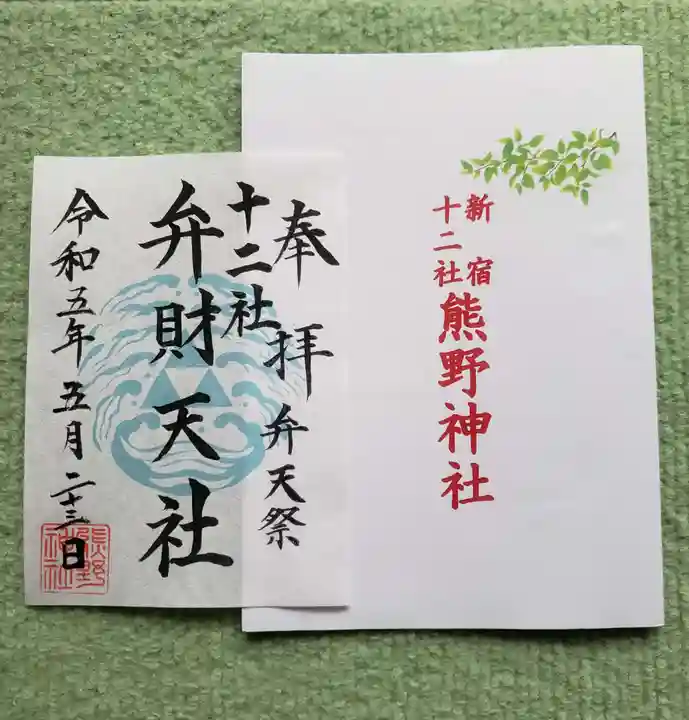 奉拝 弁天祭
十二社
弁財天社
令和五年五月二十三日
熊野
神社
新宿
十二社
熊野神社